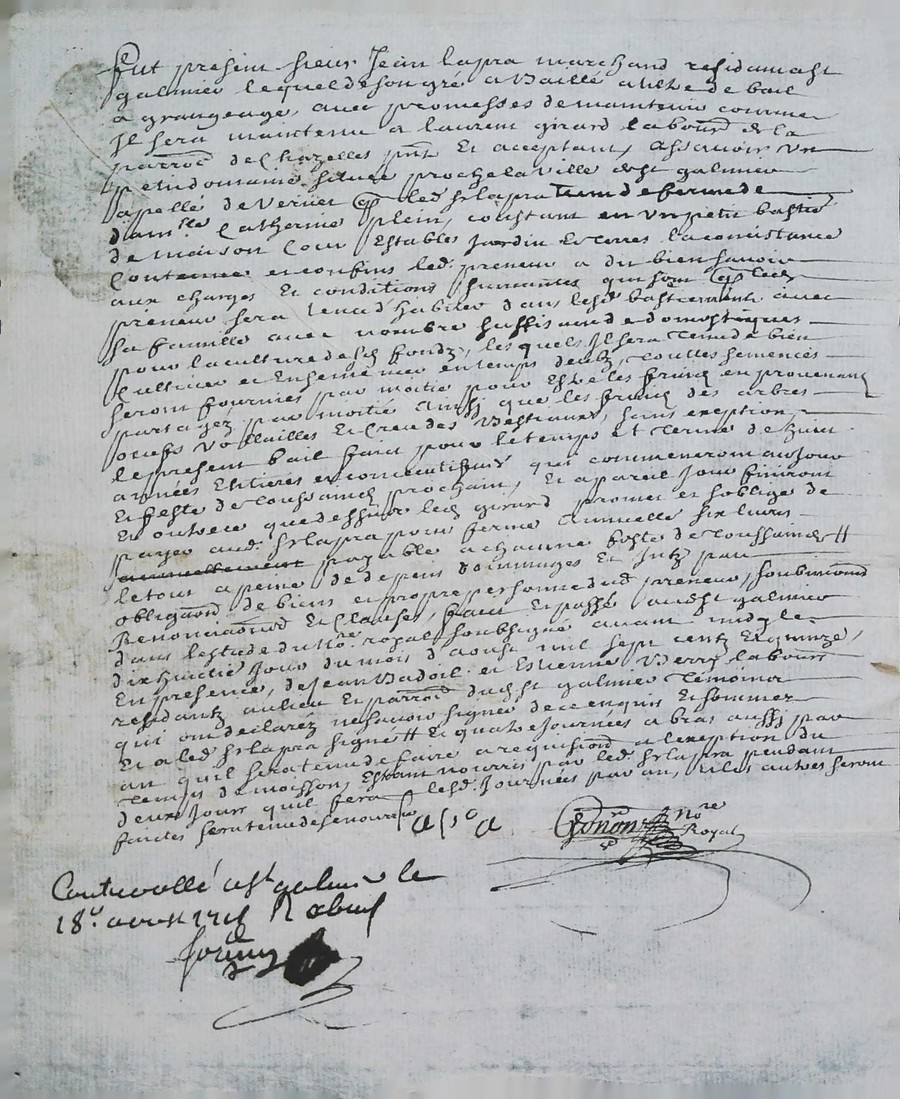 Fut présent sieur Jean lapra marchand résidant a st
galmier lequel de son gré a Baillé a tiltre de bail
a grangeage, avec promesses de maintenir comme
Il sera maintenu a laurent girard labourr de la
parroe de Chazelles pnt Et acceptant, ascavoir un
petit domaine situé proche la ville de st galmier
apellé de Vernet que led sr lapra tient de ferme de
damlle Catherine plein, consistant en un petit bastie
de maison Cour Estables Jardin Et terres la consistance
Contenue et confins led. preneur a dit bien scavoir
aux charges Et conditions suivantes qui sont que led
preneur sera tenu d'habiter dans lesd bastiments avec
sa famille avec nombre suffisant de domestiques
pour la culture desd fondz, lesquels Il sera tenu de bien
Cultiver et Ensemencer en temps deubz, touttes semences
seront fournies par moitié pour Estre les fruicts en provenant
partagéz par moitié ainsy que les fruicts des arbres
oeufs Vollailles Et Creu des Bestiaux, sans exeption,
le present bail fait pour le temps Et terme de huit
années Entieres et consecutives qui commenceront au jour
Et feste de toussaincts prochain, Et a pareil jour finiront
En outre ce que dessus led girard promet et s'oblige de
payer aud. sr lapra pour ferme annuelle six livres
annuellement payable a chacune feste de toussaincts #
le tout a peine de depens dommages Et Intz par
obligaond de biens et propre personne dud preneur, soubmiond
Renonciaond Et Clauses, fait Et passé aud st galmier
dans l'estude du nre. royal soubsigné avant midy le
dix huitie jour du mois d'aoust mil sept centz Et quinze,
En presence, de Jean Badoil et Estienne Verry labourrs
residantz au lieu Et parroe dud st galmier temoins
qui ont declaréz ne scavoir signer de ce enquis Et sommez
Et a led sr lapra signé # Et quatre journées a bras aussy par
an qu'il sera tenu de faire a requisiond a l'exeption du
temps de moisson, Estant nourris par led. sr lapra pendant
deux jours qu'il fera lesd. journées par an, et les autres seront
faictes sera tenu de se nourrir
Gonon nore
Royal
Controollé a st galmier le
18e. aoust 1715